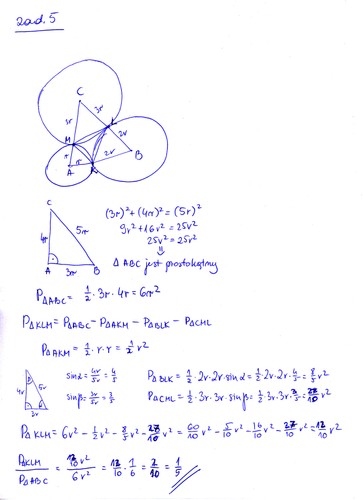 zad. 5
C
3r 3r
M L
r 2r
A r K 2r B
C
4r 5r
A 3r B
(3r)² + (4r)² = (5r)²
9r² + 16r² = 25r²
25r² = 25r²
⇓
Δ ABC jest prostokątny
PΔABC = 1/2 · 3r · 4r = 6r²
PΔKLM = PΔABC - PΔAKM - PΔBLK - PΔCML
PΔAKM = 1/2 · r · r = 1/2 r²
4r 5r
3r
sinα = 4r/5r = 4/5
sinβ = 3r/5r = 3/5
PΔBLK = 1/2 · 2r · 2r · sinα = 1/2 · 2r · 2r · 4/5 = 8/5 r²
PΔCML = 1/2 · 3r · 3r · sinβ = 1/2 · 3r · 3r · 3/5 = 27/10 r²
PΔKLM = 6r² - 1/2 r² - 8/5 r² - 27/10 r² = 60/10 r² - 5/10 r² - 16/10 r² - 27/10 r² = 12/10 r²
PΔKLM/PΔABC = 12/10 r²/6r² = 12/10 · 1/6 = 2/10 = 1/5